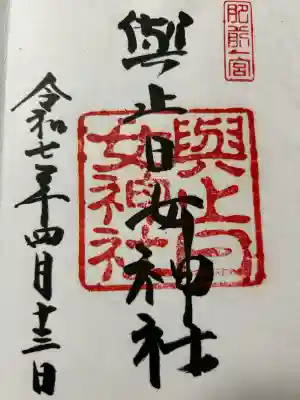 肥前一宮
與止日女神社
與止日女神社
令和七年四月十三日